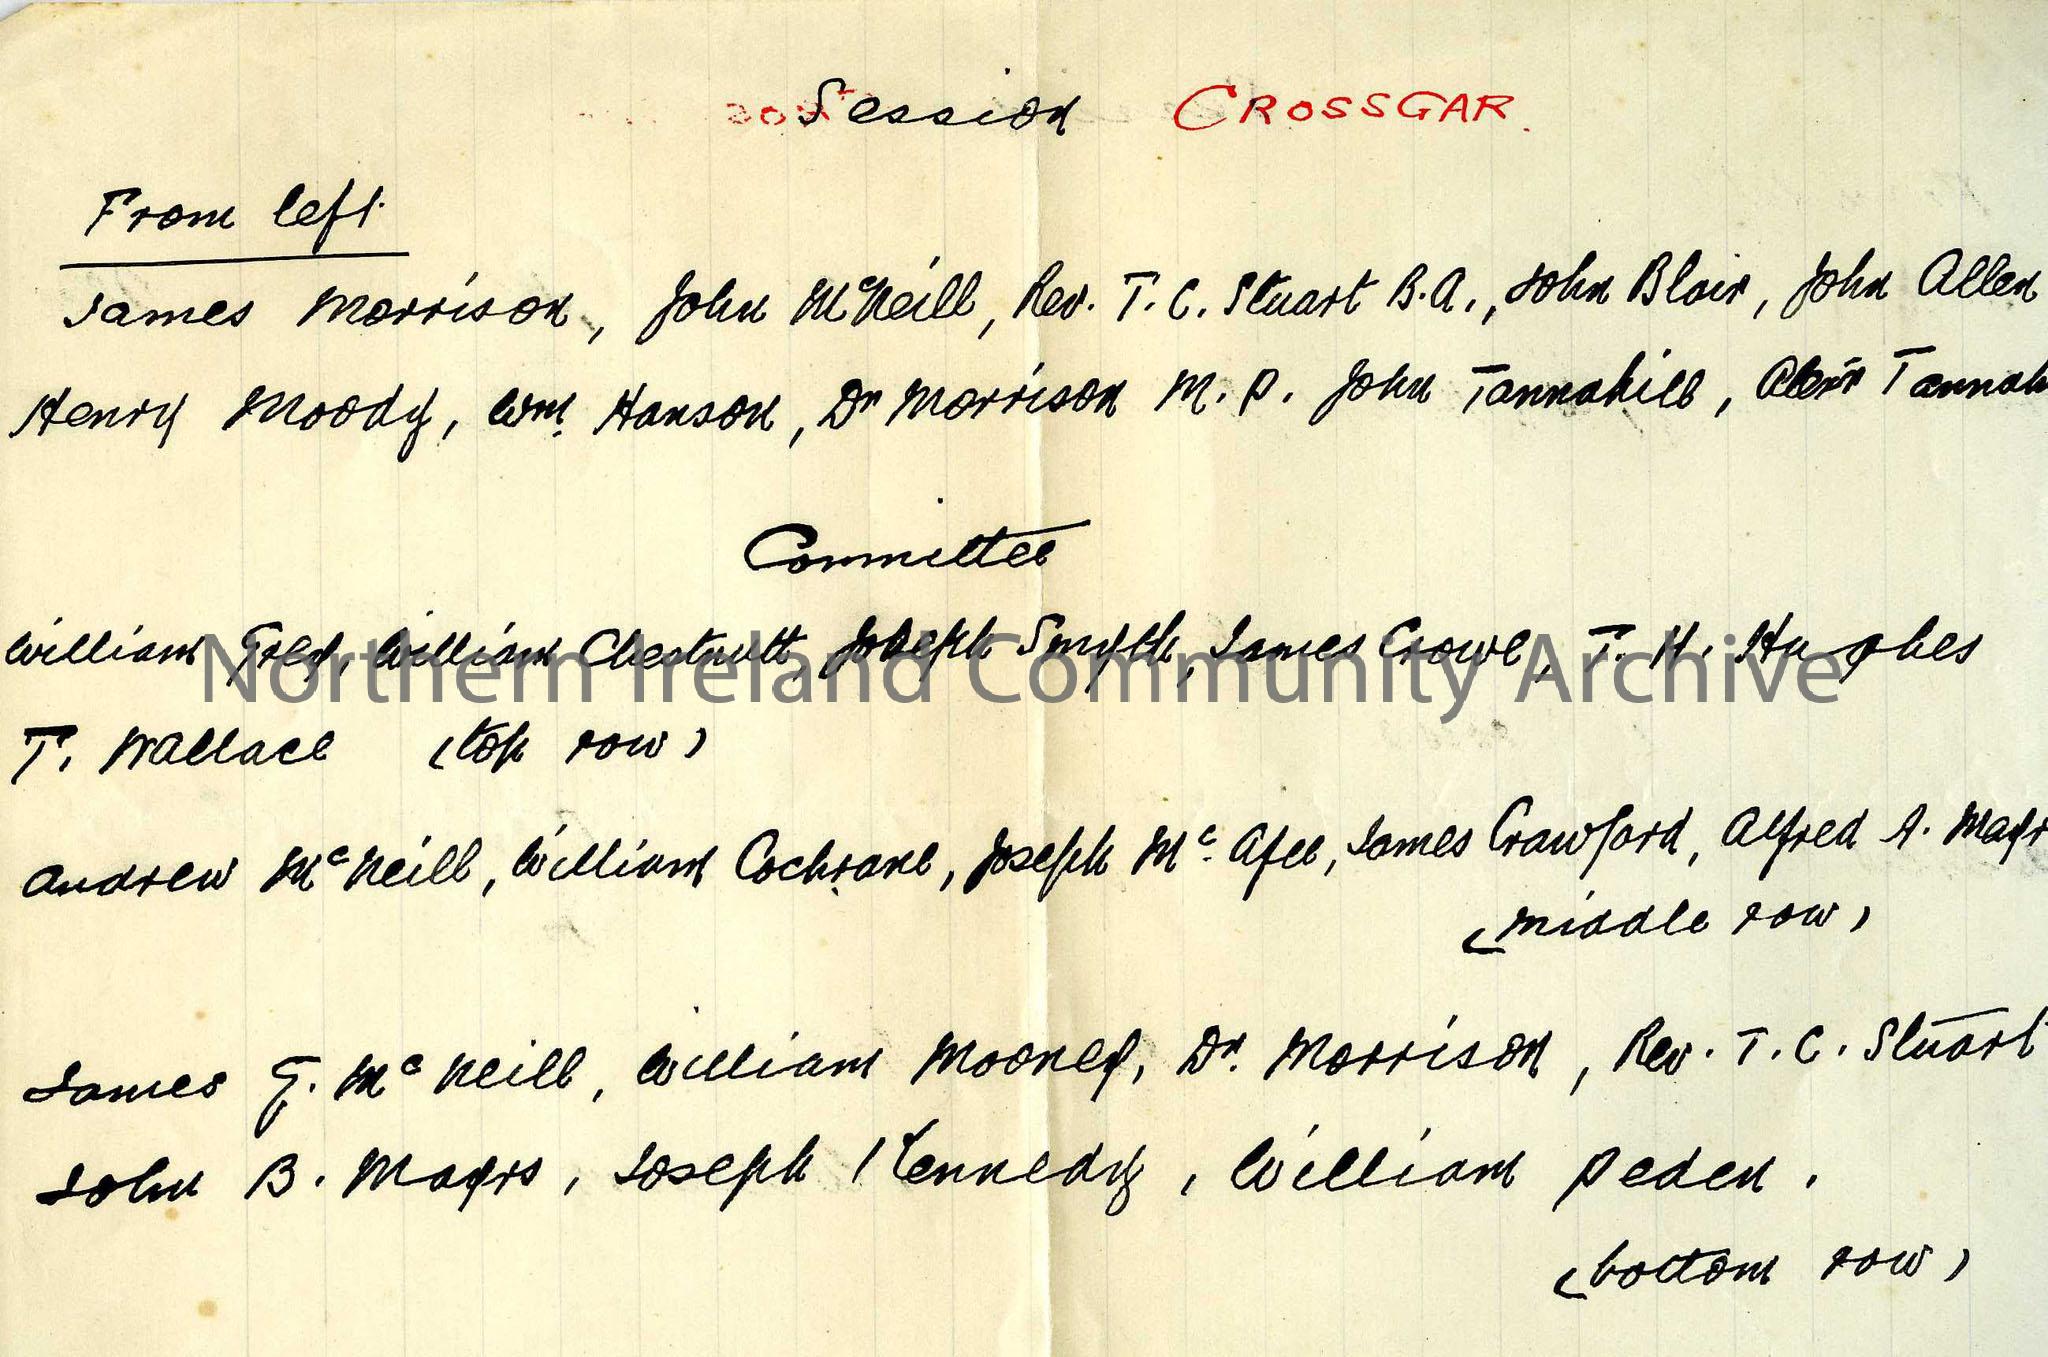 Session CROSSGAR.
From left
James Morrison, John McNeill, Rev. T. C. Stuart B.A., John Blair, John Allen
Henry Moody, Wm. Hanson, Dr Morrison M. P. John Tannahill, Tannah
Committee
William Grey, William Chestnutt, Joseph Smyth, James Crowe, T. H. Hughes
Northern Ireland Community Archive
T. Wallace (top row)
Andrew McNeill, William Cochrane, Joseph Mc. Afee, James Crawford, Alfred A. Mayr
(middle row)
James G. McNeill, William Mooney, Dr. Morrison, Rev. T. C. Stuart
John B. Mayrs, Joseph Kennedy, William Peden.
(bottom row)